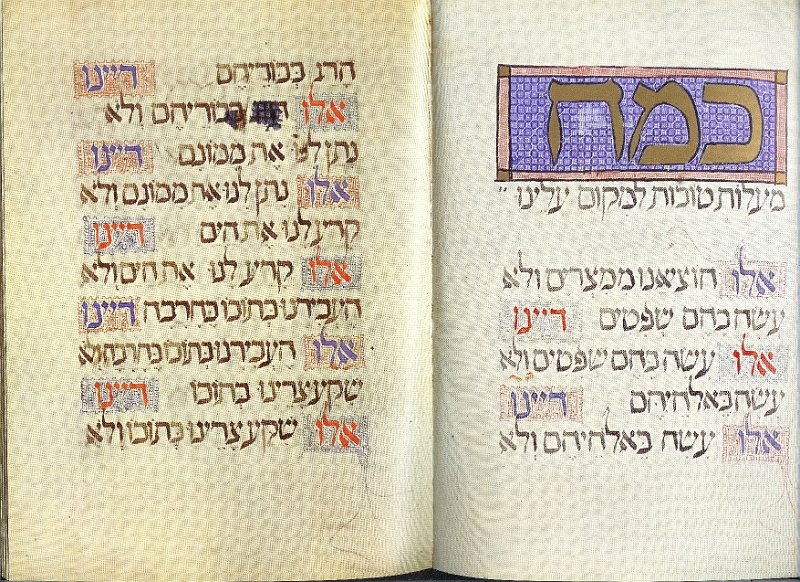 כמה
מעלות טובות למקום עלינו
אלו הוציאנו ממצרים ולא
עשה בהם שפטים דיינו
אלו עשה בהם שפטים ולא
עשה באלהיהם דיינו
אלו עשה באלהיהם ולא
הרג בכוריהם דיינו
אלו הרג בכוריהם ולא
נתן לנו את ממונם דיינו
אלו נתן לנו את ממונם ולא
קרע לנו את הים דיינו
אלו קרע לנו את הים ולא
העבירנו בתוכו בחרבה דיינו
אלו העבירנו בתוכו בחרבה ולא
שקע צרינו בתוכו דיינו
אלו שקע צרינו בתוכו ולא